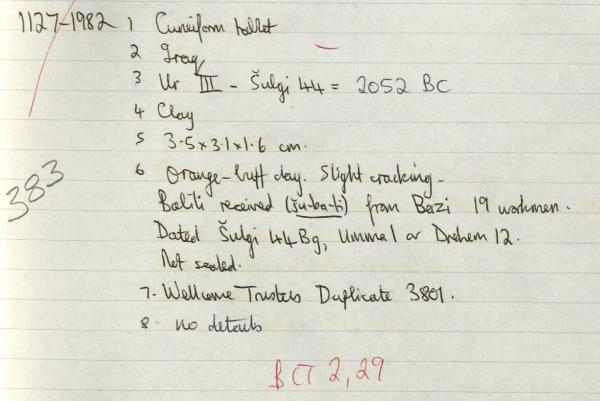 1127-1982 1 Cuneiform tablet
2 Iraq
3 Ur III - Šulgi 44 = 2052 BC
4 Clay
5 3.5 x 3.1 x 1.6 cm.
383
6 Orange-buff clay. Slight cracking.
Balili received (šu-ba-ti) from Bazi 19 workmen.
Dated Šulgi 44 Bg, Umma 1 or Drehem 12.
Not sealed.
7. Wellcome Trustees Duplicate 3801.
8. no details
BCT 2, 29